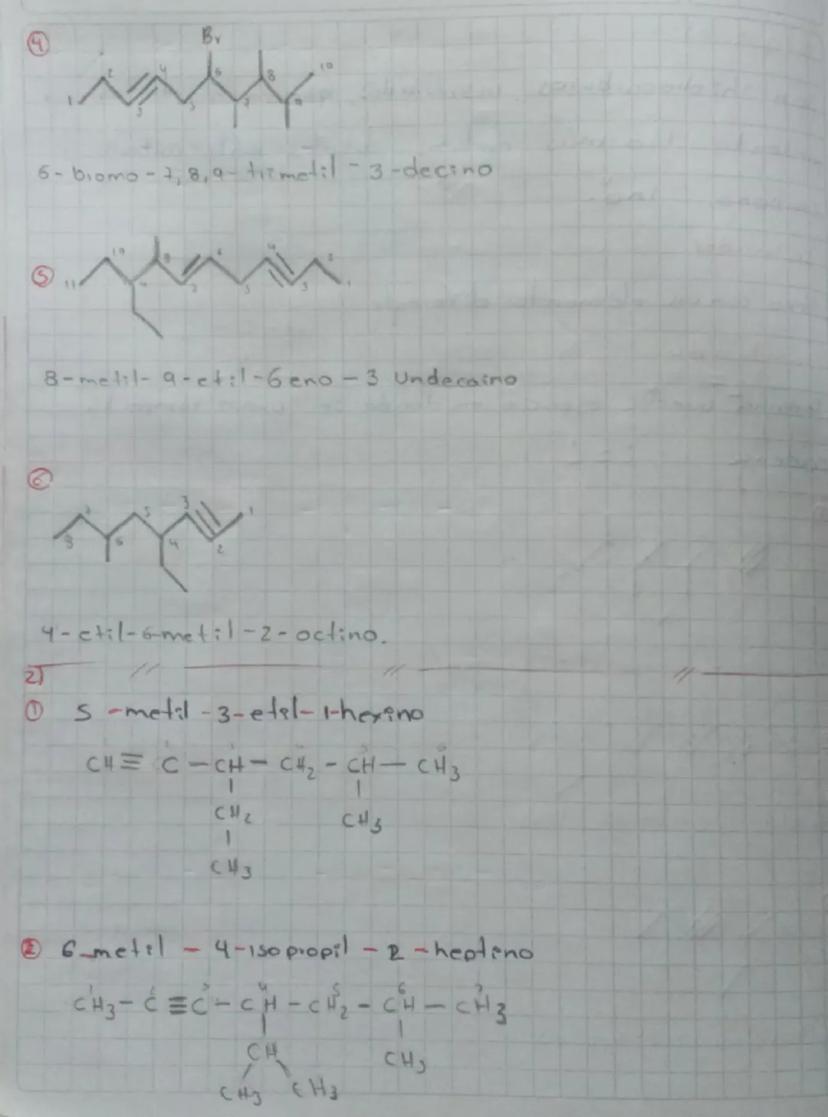 4
Br
1 2 3 4 5 6 7 8 9 10
6-bromo-7,8,9-trimetil-3-decino
5
11 10 9 8 7 6 5 4 3 2 1
8-metil-9-etil-6eno-3 Undecaino
6
8 7 6 5 4 3 2 1
4-etil-6metil-2-octino.
2)
1 5-metil-3-etil-1-hexino
CH≡C-CH-CH2-CH-CH3
CH2 CH3
CH3
2 6-metil-4-isopropil-2-heptino
1 2 3 4 5 6 7
CH3-C≡C-CH-CH2-CH-CH3
CH CH3
CH3 CH3